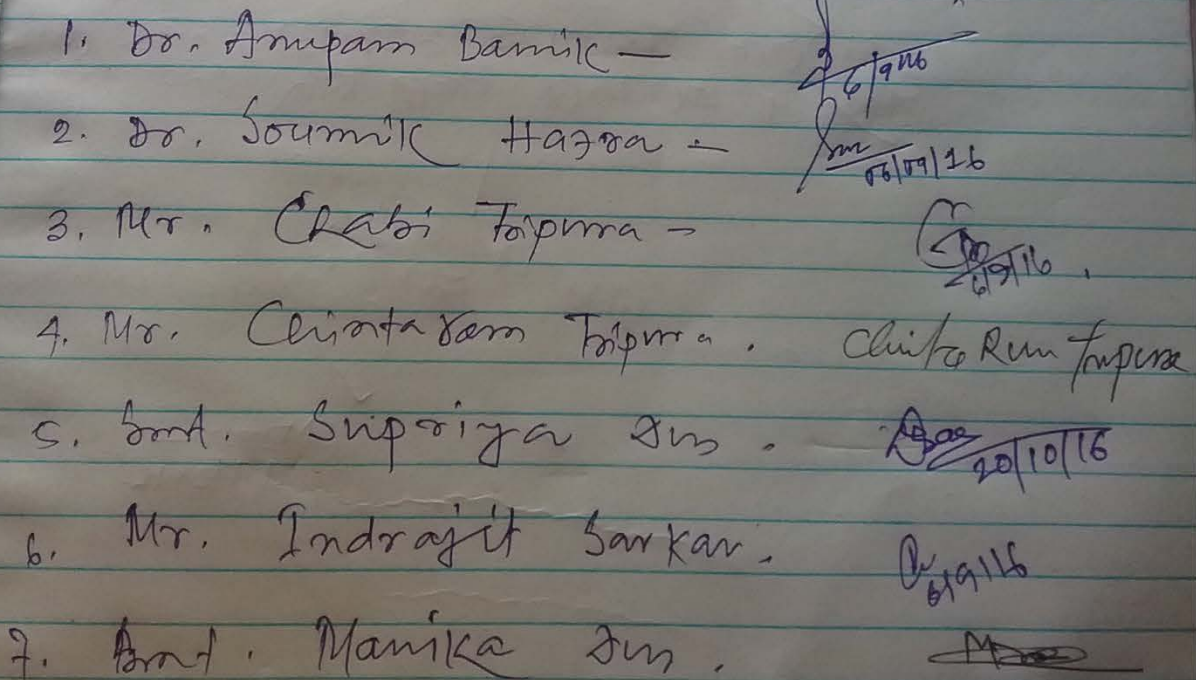 1. Dr. Anupam Bamik — 6/9/16
2. Dr. Soumik Hazra – 06/09/16
3. Mr. Chabi Tripura – 6/9/16
4. Mr. Chintaram Tripura. Chinta Ram Tripura
5. Smt. Supriya Das. 20/10/16
6. Mr. Indrajit Sarkar. 6/9/16
7. Smt. Manika Das.